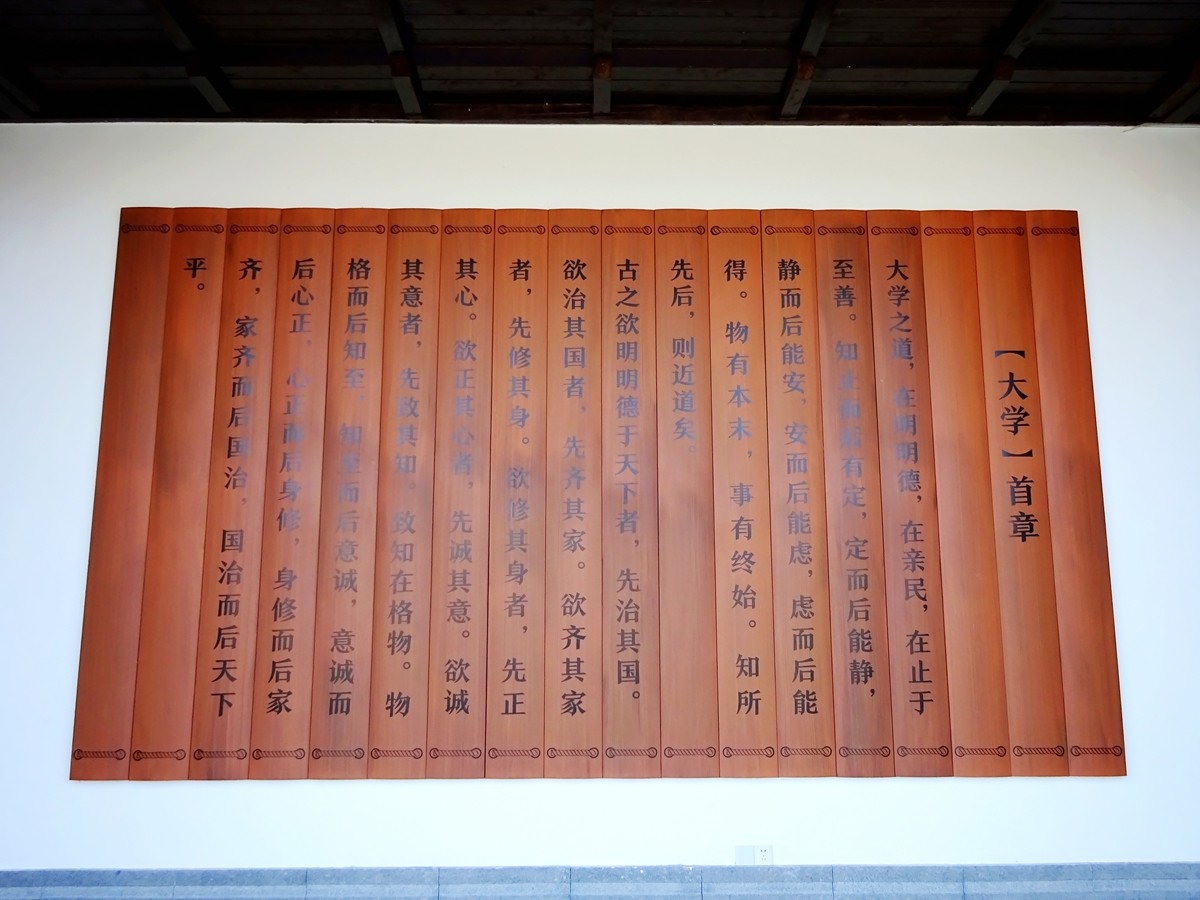 【大学】首章
大学之道，在明明德，在亲民，在止于
至善。知止而后有定，定而后能静，
静而后能安，安而后能虑，虑而后能
得。物有本末，事有终始。知所
先后，则近道矣。
古之欲明明德于天下者，先治其国。
欲治其国者，先齐其家。欲齐其家
者，先修其身。欲修其身者，先正
其心。欲正其心者，先诚其意。欲诚
其意者，先致其知。致知在格物。物
格而后知至，知至而后意诚，意诚而
后心正，心正而后身修，身修而后家
齐，家齐而后国治，国治而后天下
平。